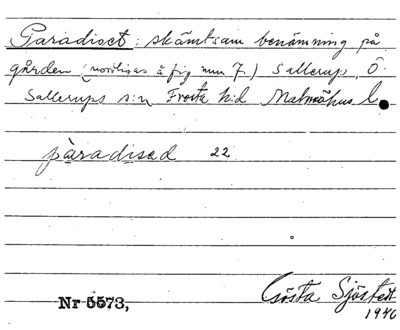 Paradiset: skämtsam benämning på
gården (nordligas å fig num 7.) Sallerup, Ö.
Sallerups s:n Frosta h:d Malmöhus l.
pàradised 22
Gösta Sjöstedt
1940
Nr 5573,